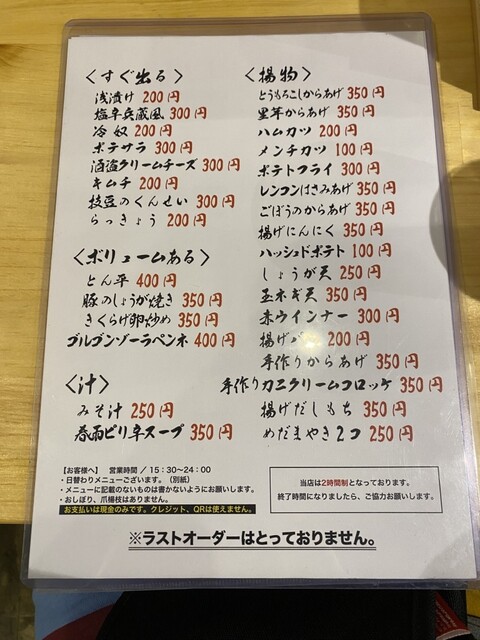 〈すぐ出る〉
浅漬け 200円
塩辛兵蔵風 300円
冷奴 200円
ポテサラ 300円
酒盗クリームチーズ 300円
キムチ 200円
枝豆のくんせい 300円
らっきょう 200円
〈ボリュームある〉
とん平 400円
豚のしょうが焼き 350円
きくらげ卵炒め 350円
ゴルゴンゾーラペンネ 400円
〈汁〉
みそ汁 250円
春雨ピリ辛スープ 350円
〈揚物〉
とうもろこしからあげ 350円
里芋からあげ 350円
ハムカツ 200円
メンチカツ 100円
ポテトフライ 350円
レンコンはさみあげ 350円
ごぼうのからあげ 350円
揚げにんにく 350円
ハッシュドポテト 100円
しょうが天 250円
玉ネギ天 350円
赤ウインナー 300円
揚げパン 200円
手作りからあげ 350円
手作りカニクリームコロッケ 350円
揚げだしもち 350円
めだまやき2コ 250円
【お客様へ】 営業時間 / 15:30~24:00
・日替わりメニューございます。(別紙)
・メニューに記載のないものは書かないようにお願いします。
・おしぼり、爪楊枝はありません。
お支払いは現金のみです。クレジット、QRは使えません。
当店は2時間制となっております。
終了時間になりましたら、ご協力お願いします。
※ラストオーダーはとっておりません。